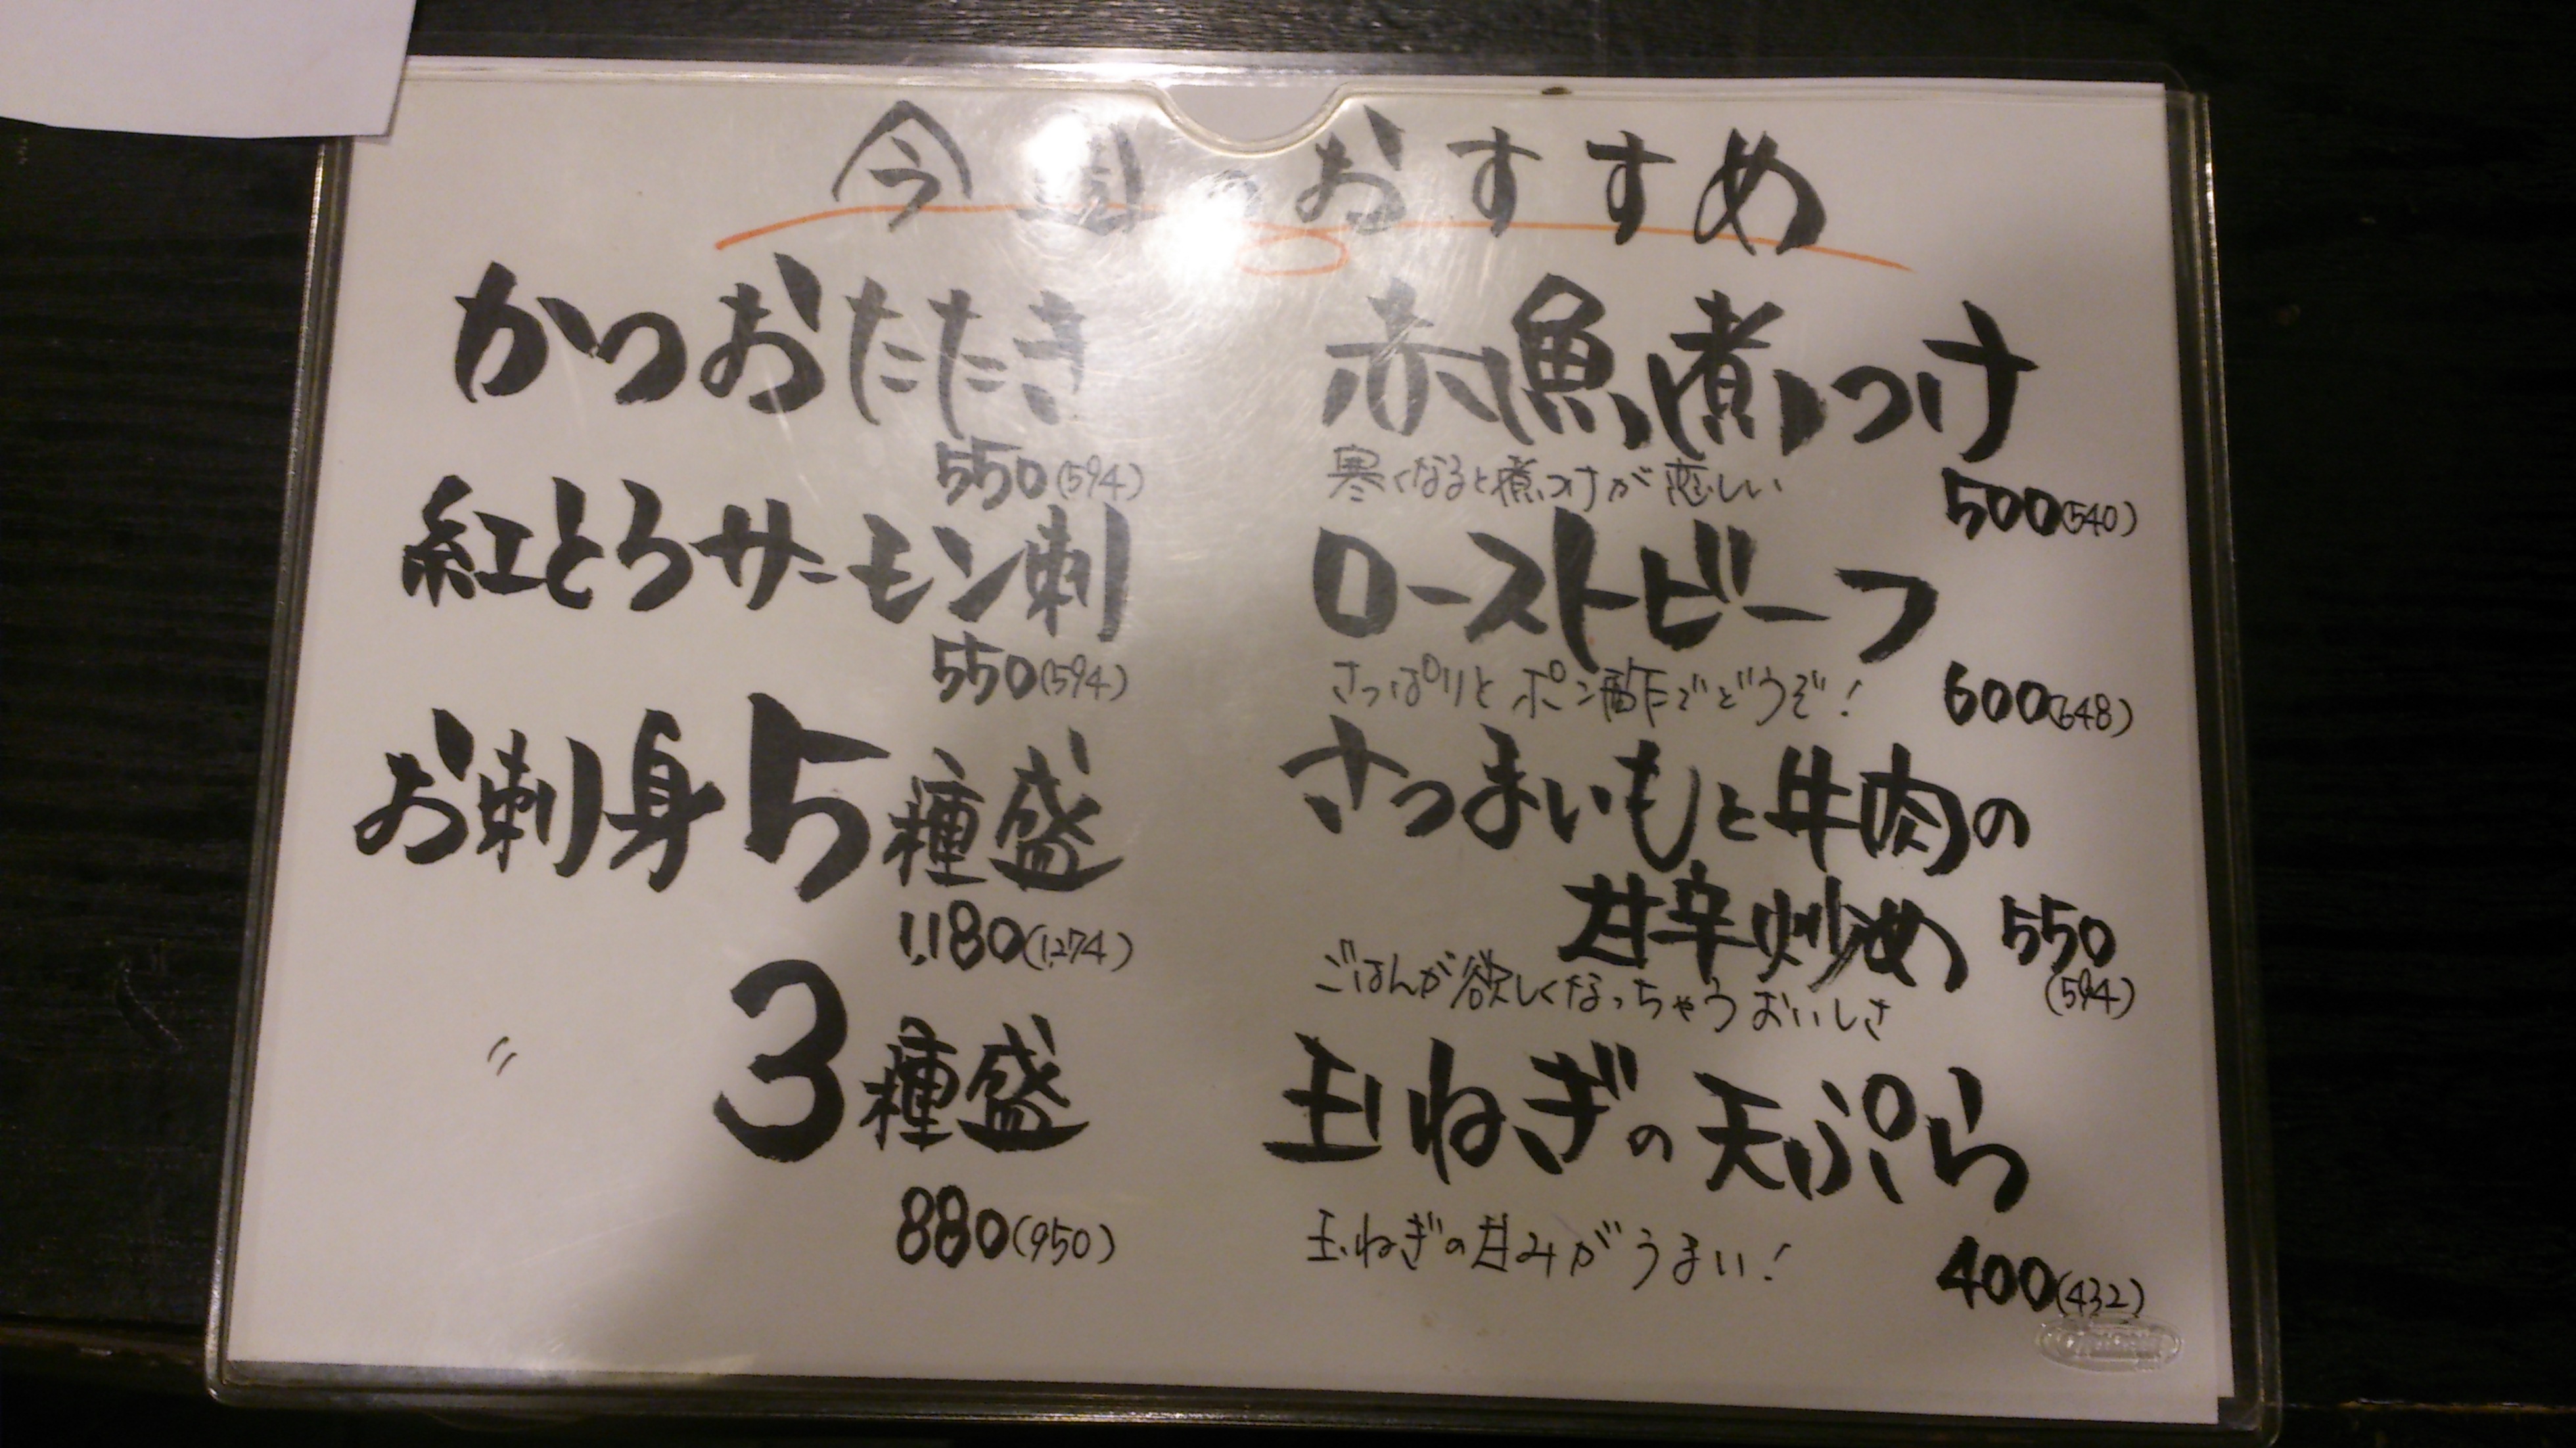 今週のおすすめ
かつおたたき
550(594)
紅とろサーモン刺
550(594)
お刺身5種盛
1,180(1,274)
〃 3種盛
880(950)
赤魚煮つけ
寒くなると煮つけが恋しい
500(540)
ローストビーフ
さっぱりとポン酢でどうぞ!
600(648)
さつまいもと牛肉の
甘辛炒め 550
(594)
ごはんが欲しくなっちゃうおいしさ
玉ねぎの天ぷら
玉ねぎの甘みがうまい!
400(432)